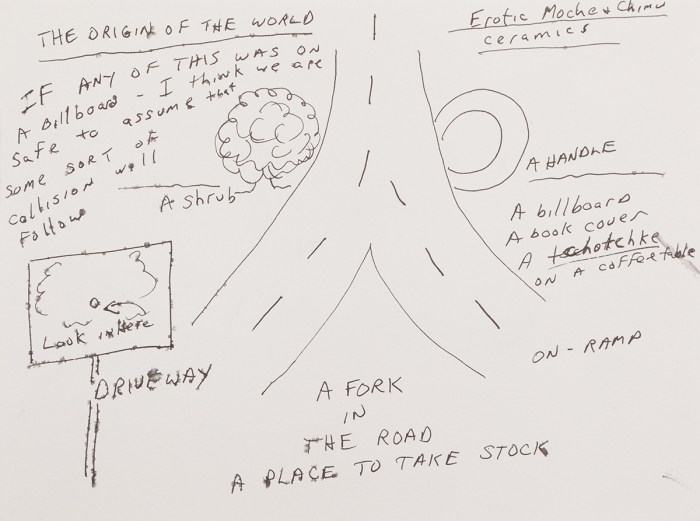 THE ORIGIN OF THE WORLD
IF ANY OF THIS WAS ON
A Billboard - I think we are
safe to assume that
some sort of
collision will
follow
A shrub
Look in Here
DRIVEWAY
Erotic Moche & Chimu
ceramics
A HANDLE
A billboard
A book cover
A tchotchke
ON A coffeetable
ON-RAMP
A FORK
IN
THE ROAD
A PLACE TO TAKE STOCK